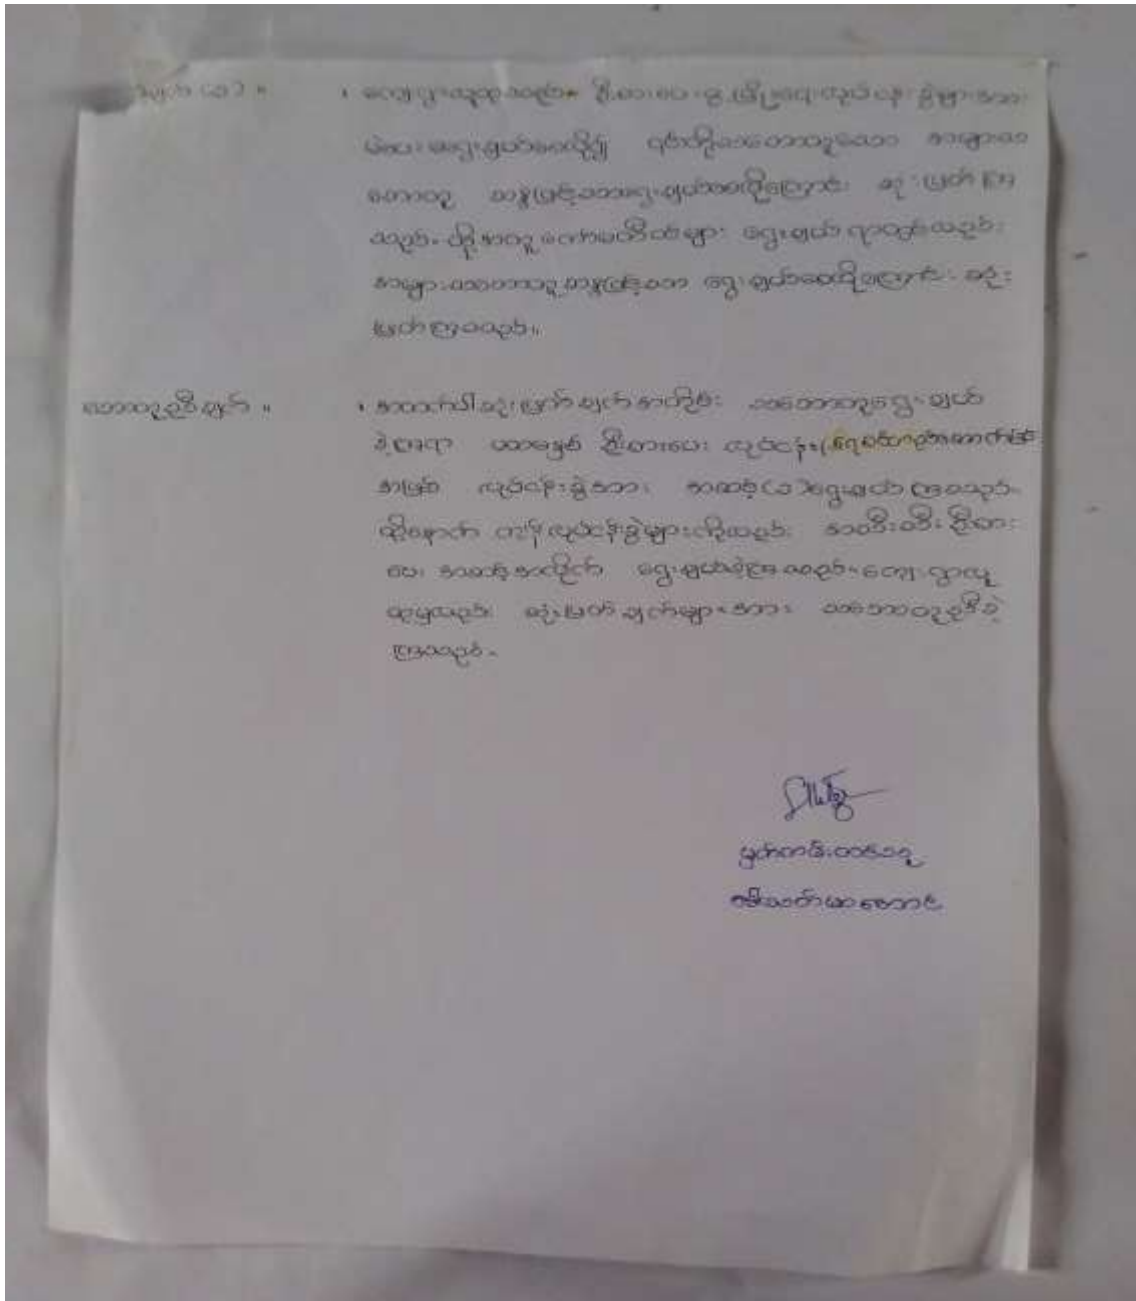 ချက် (၁) ။ • ကျေးရွာလူထုသည် ဦးစားပေး ဖွံ့ဖြိုးရေးလုပ်ငန်းခွဲများအား
မဲပေးရွေးချယ်စေလို၍ ၎င်းတို့သဘောတူသော အများသ
ဘောတူ ဆန္ဒဖြင့်သာရွေးချယ်စေလိုကြောင်း ဆုံးဖြတ်ကြ
သည်။ ထို့အတူ ကော်မတီဝင်များ ရွေးချယ်ရာတွင်လည်း
အများသဘောတူဆန္ဒဖြင့်သာ ရွေးချယ်စေလိုကြောင်း ဆုံး
ဖြတ်ကြသည်။
သဘောတူညီချက် ။ • အထက်ပါဆုံးဖြတ်ချက်အတိုင်း သဘောတူရွေးချယ်
ခဲ့ကြရာ ပထမနှစ် ဦးစားပေး လုပ်ငန်း
အဖြစ် လုပ်ငန်းခွဲအား အဆင့်(၁)ရွေးချယ်ကြသည်။
ထို့နောက် ကျန်လုပ်ငန်းခွဲများကိုလည်း အသီးသီး ဦးစား
ပေး အဆင့်အလိုက် ရွေးချယ်ခဲ့ကြသည်။ ကျေးရွာလူ
ထုမှလည်း ဆုံးဖြတ်ချက်များအား သဘောတူညီခဲ့
ကြသည်။
မှတ်တမ်းတင်သူ